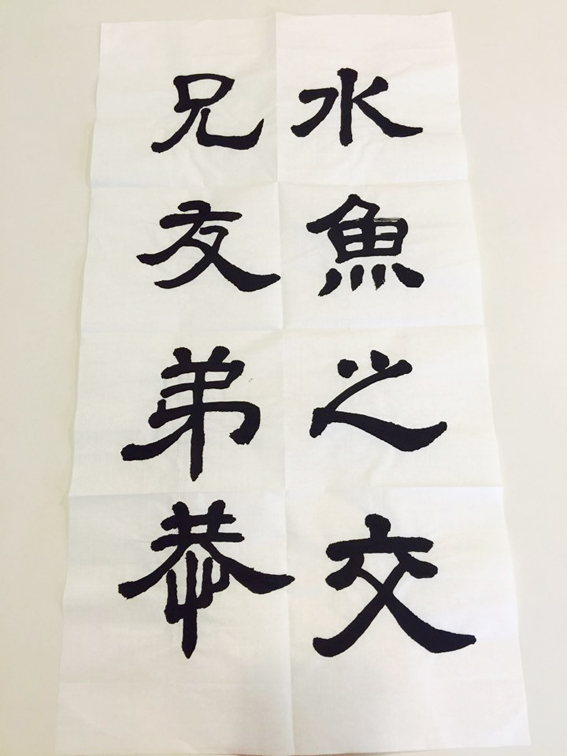 水魚之交
兄友弟恭